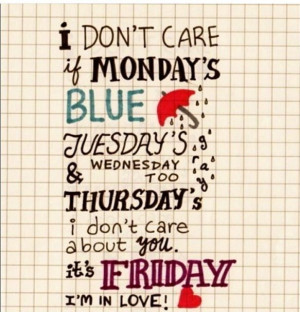 i DON'T CARE
if MONDAY'S
BLUE
TUESDAY'S gray
& WEDNESDAY TOO
THURSDAY'S
i don't care
about you.
it's FRIDAY
I'M IN LOVE!